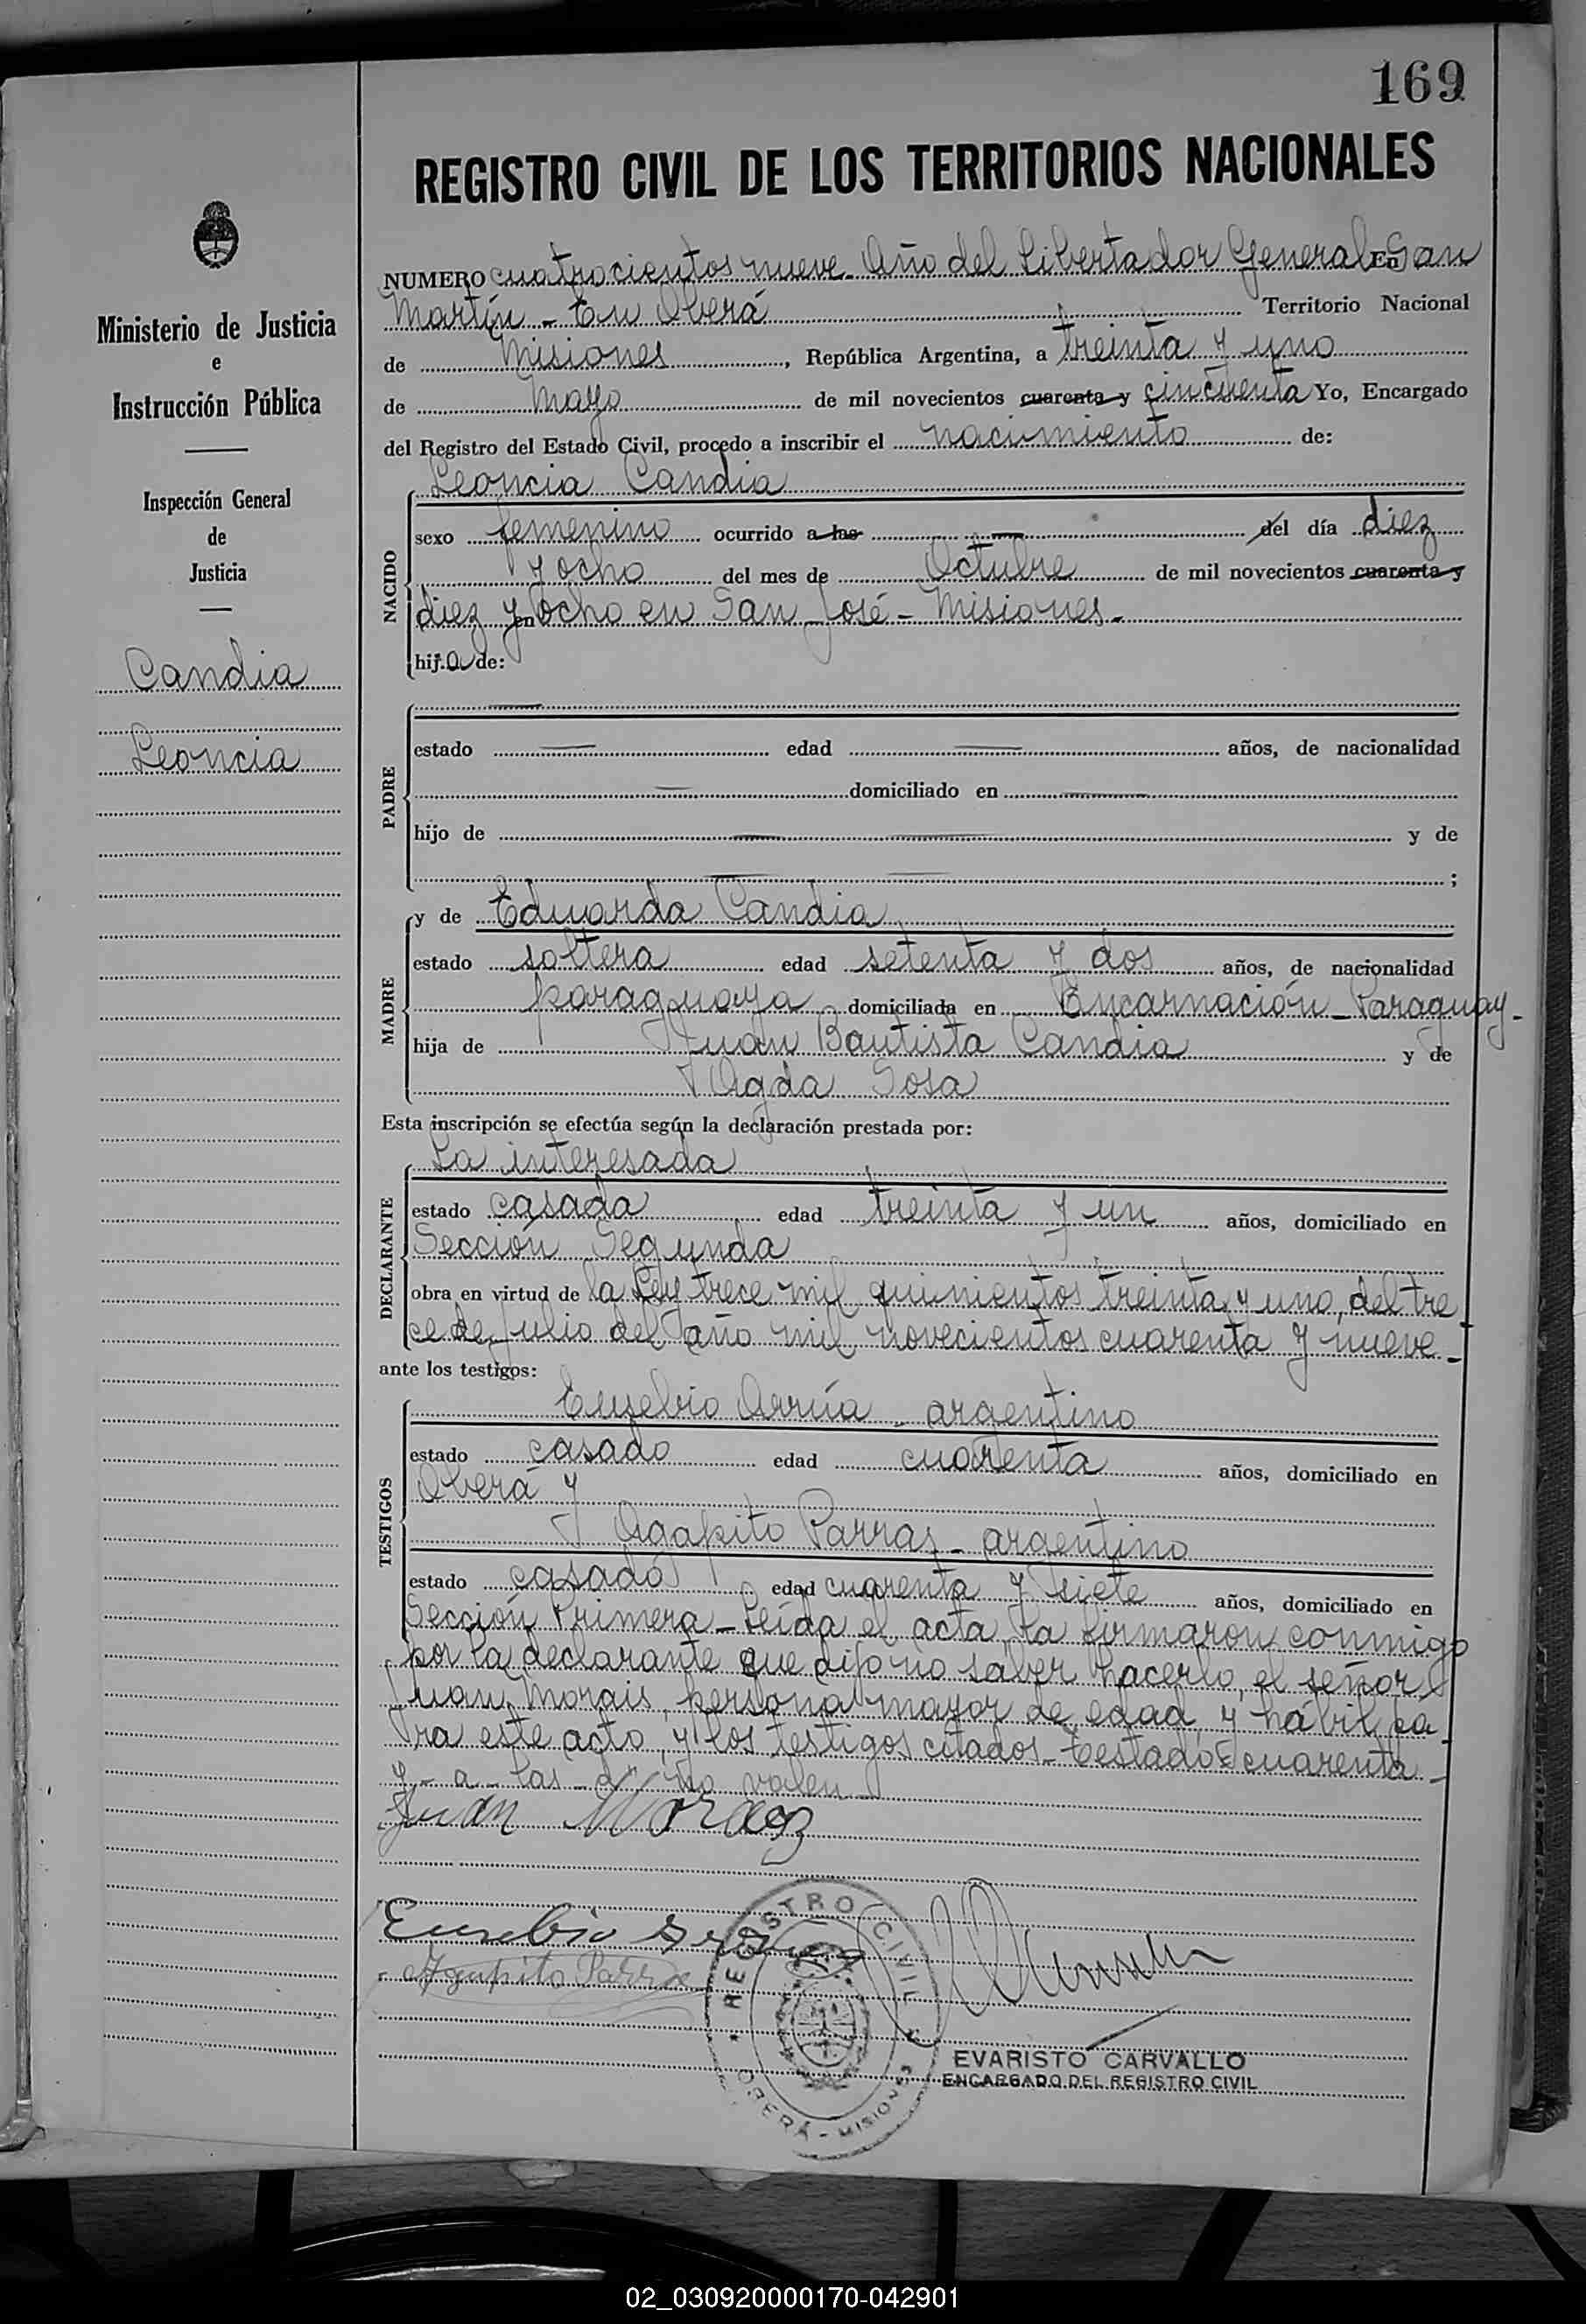 169
REGISTRO CIVIL DE LOS TERRITORIOS NACIONALES
Ministerio de Justicia
e
Instrucción Pública
Inspección General
de
Justicia
Candia
Leoncia
NUMERO cuatrocientos nueve - Año del Libertador General En San
Martín - En Oberá Territorio Nacional
de Misiones, República Argentina, a treinta y uno
de Mayo de mil novecientos cuarenta y cincuenta Yo, Encargado
del Registro del Estado Civil, procedo a inscribir el nacimiento de:
NACIDO
Leoncia Candia
sexo femenino ocurrido a las — del día diez
y ocho del mes de Octubre de mil novecientos cuarenta y
diez y en ocho en San José - Misiones.
hija de:
PADRE
estado edad años, de nacionalidad
domiciliado en
hijo de y de
;
MADRE
y de Eduarda Candia
estado soltera edad setenta y dos años, de nacionalidad
paraguaya domiciliada en Encarnación - Paraguay -
hija de Juan Bautista Candia y de
Agda Sosa
Esta inscripción se efectúa según la declaración prestada por:
DECLARANTE
La interesada
estado casada edad treinta y un años, domiciliado en
Sección Segunda
obra en virtud de la Ley trece mil quinientos treinta y uno, del tre
ce de julio del año mil novecientos cuarenta y nueve -
ante los testigos:
TESTIGOS
Eusebio Arrúa - argentino
estado casado edad cuarenta años, domiciliado en
Oberá y
Agapito Parras - argentino
estado casado edad cuarenta y siete años, domiciliado en
Sección Primera - Leída el acta, la firmaron conmigo
por la declarante que dijo no saber hacerlo, el señor
Juan Morais, persona mayor de edad y hábil pa
ra este acto, y los testigos citados - Testado: cuarenta -
y - a - las - d - no valen
Juan Moraez
Eusebio
Agapito Parra
REGISTRO CIVIL
OBERÁ - MISIONES
EVARISTO CARVALLO
ENCARGADO DEL REGISTRO CIVIL
02_030920000170-042901